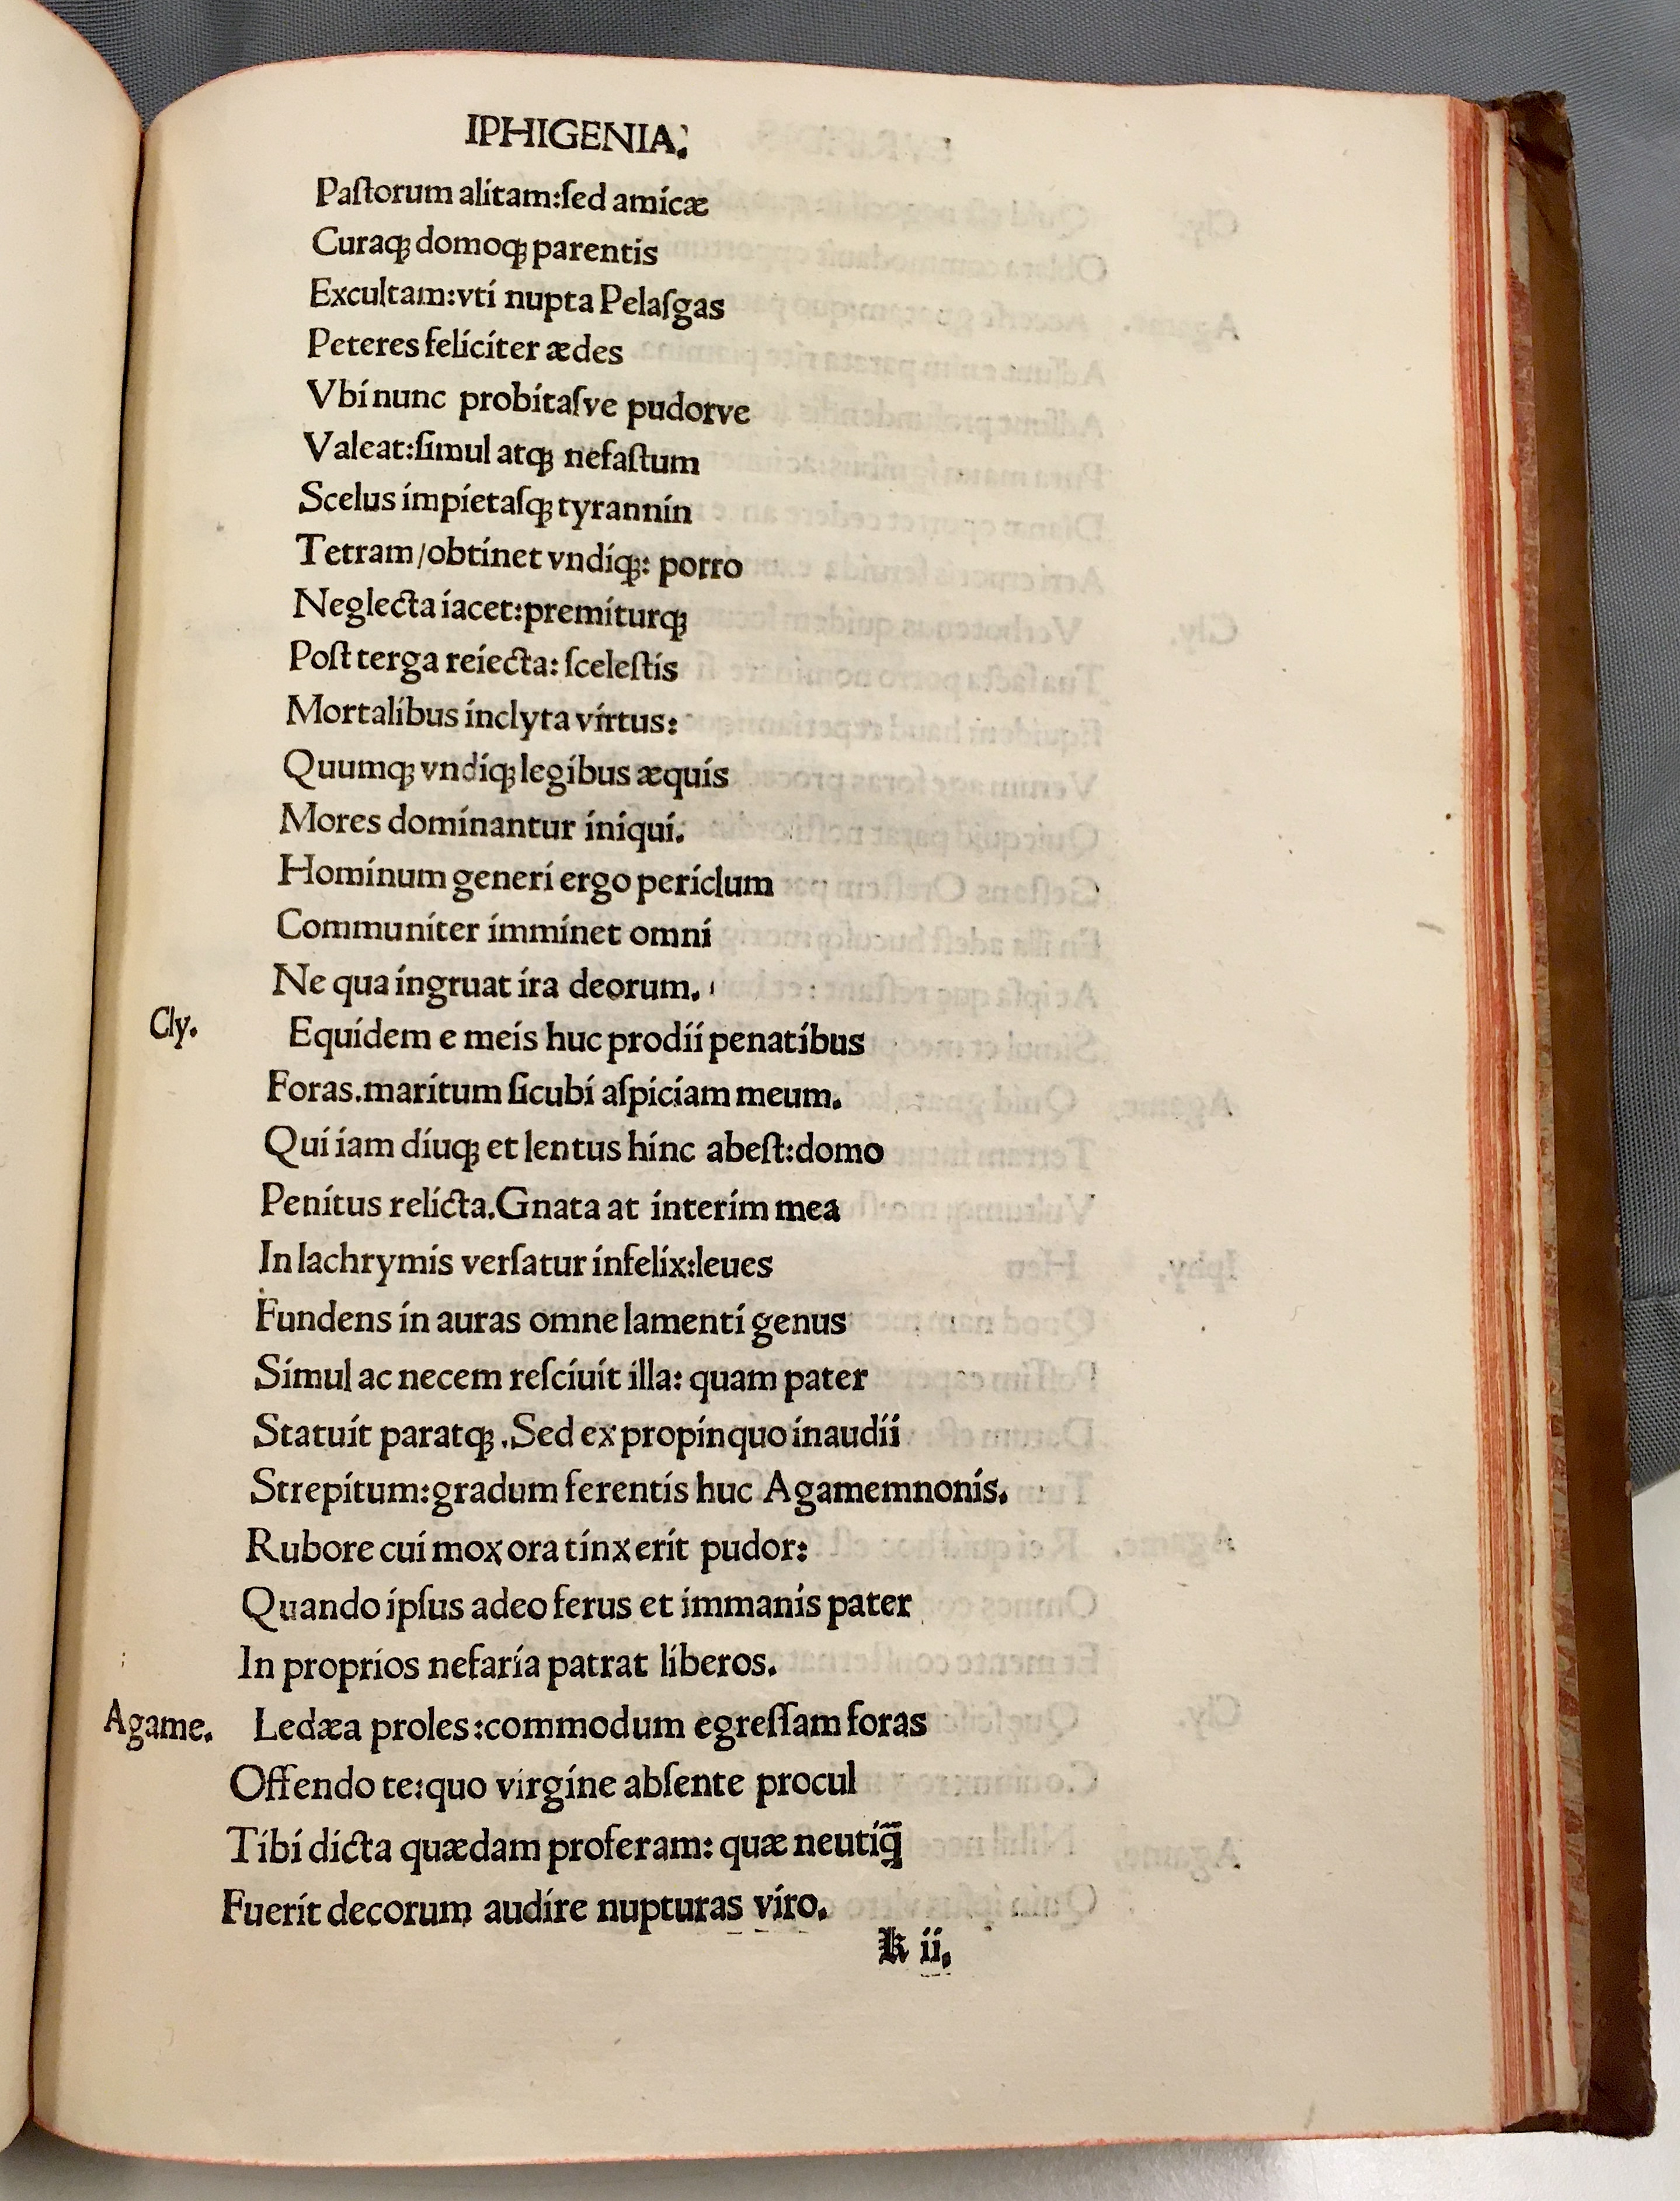 IPHIGENIA.
Paſtorum alitam:ſed amicæ
Curaqꝫ domoqꝫ parentis
Excultam:vti nupta Pelaſgas
Peteres feliciter ædes
Vbi nunc probitaſve pudorve
Valeat:ſimul atqꝫ nefaſtum
Scelus impietaſqꝫ tyrannin
Tetram/obtinet vndiqꝫ: porro
Neglecta iacet:premiturqꝫ
Poſt terga reiecta: ſceleſtis
Mortalibus inclyta virtus:
Quumqꝫ vndiqꝫ legibus æquis
Mores dominantur iniqui.
Hominum generi ergo periclum
Communiter imminet omni
Ne qua ingruat ira deorum.
Cly. Equidem e meis huc prodii penatibus
Foras.maritum ſicubi aſpiciam meum.
Qui iam diuqꝫ et lentus hinc abeſt:domo
Penitus relicta.Gnata at interim mea
In lachrymis verſatur infelix:leues
Fundens in auras omne lamenti genus
Simul ac necem reſciuit illa: quam pater
Statuit paratqꝫ .Sed ex propinquo inaudii
Strepitum:gradum ferentis huc Agamemnonis.
Rubore cui mox ora tinxerit pudor:
Quando ipſus adeo ferus et immanis pater
In proprios nefaria patrat liberos.
Agame. Ledæa proles:commodum egreſſam foras
Offendo te:quo virgine abſente procul
Tibi dicta quædam proferam: quæ neutiq̃
Fuerit decorum audire nupturas viro.
k ii.